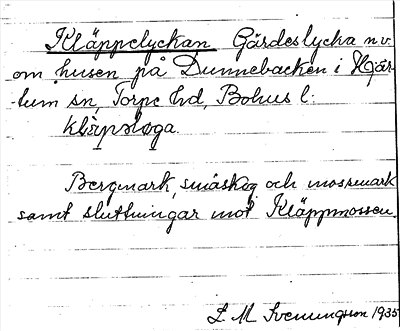 Kläppelyckan Gärdeslycka n.v.
om husen på Dunnebacken i Hjär-
tum sn, Torpe hd, Bohus l.
Bergmark, småskog och mossmark
samt sluttningar mot Kläppmossen.
L. M. Svenungsson 1935